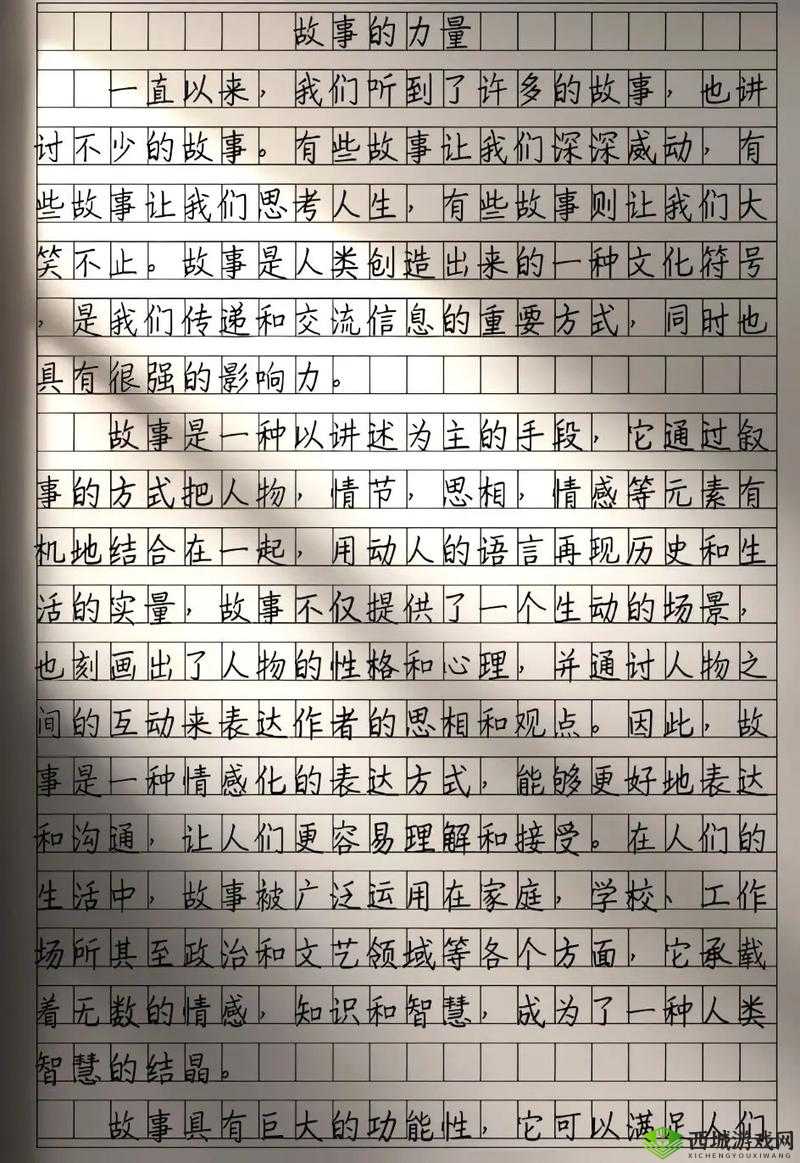 故事的力量
一直以来，我们听到了许多的故事，也讲
讨不少的故事。有些故事让我们深深威动，有
些故事让我们思考人生，有些故事则让我们大
笑不止。故事是人类创造出来的一种文化符号
，是我们传递和交流信息的重要方式，同时也
具有很强的影响力。
故事是一种以讲述为主的手段，它通过叙
事的方式把人物，情节，思相，情感等元素有
机地结合在一起，用动人的语言再现历史和生
活的实量，故事不仅提供了一个生动的场景，
也刻画出了人物的性格和心理，并通讨人物之
间的互动来表达作者的思相和观点。因此，故
事是一种情感化的表达方式，能够更好地表达
和沟通，让人们更容易理解和接受。在人们的
生活中，故事被广泛运用在家庭，学校、工作
场所其至政治和文艺领域等各个方面，它承载
着无数的情感，知识和智慧，成为了一种人类
智慧的结晶。
故事具有巨大的功能性，它可以满足人们
西城游戏网
XICHENGYOUXIWANG